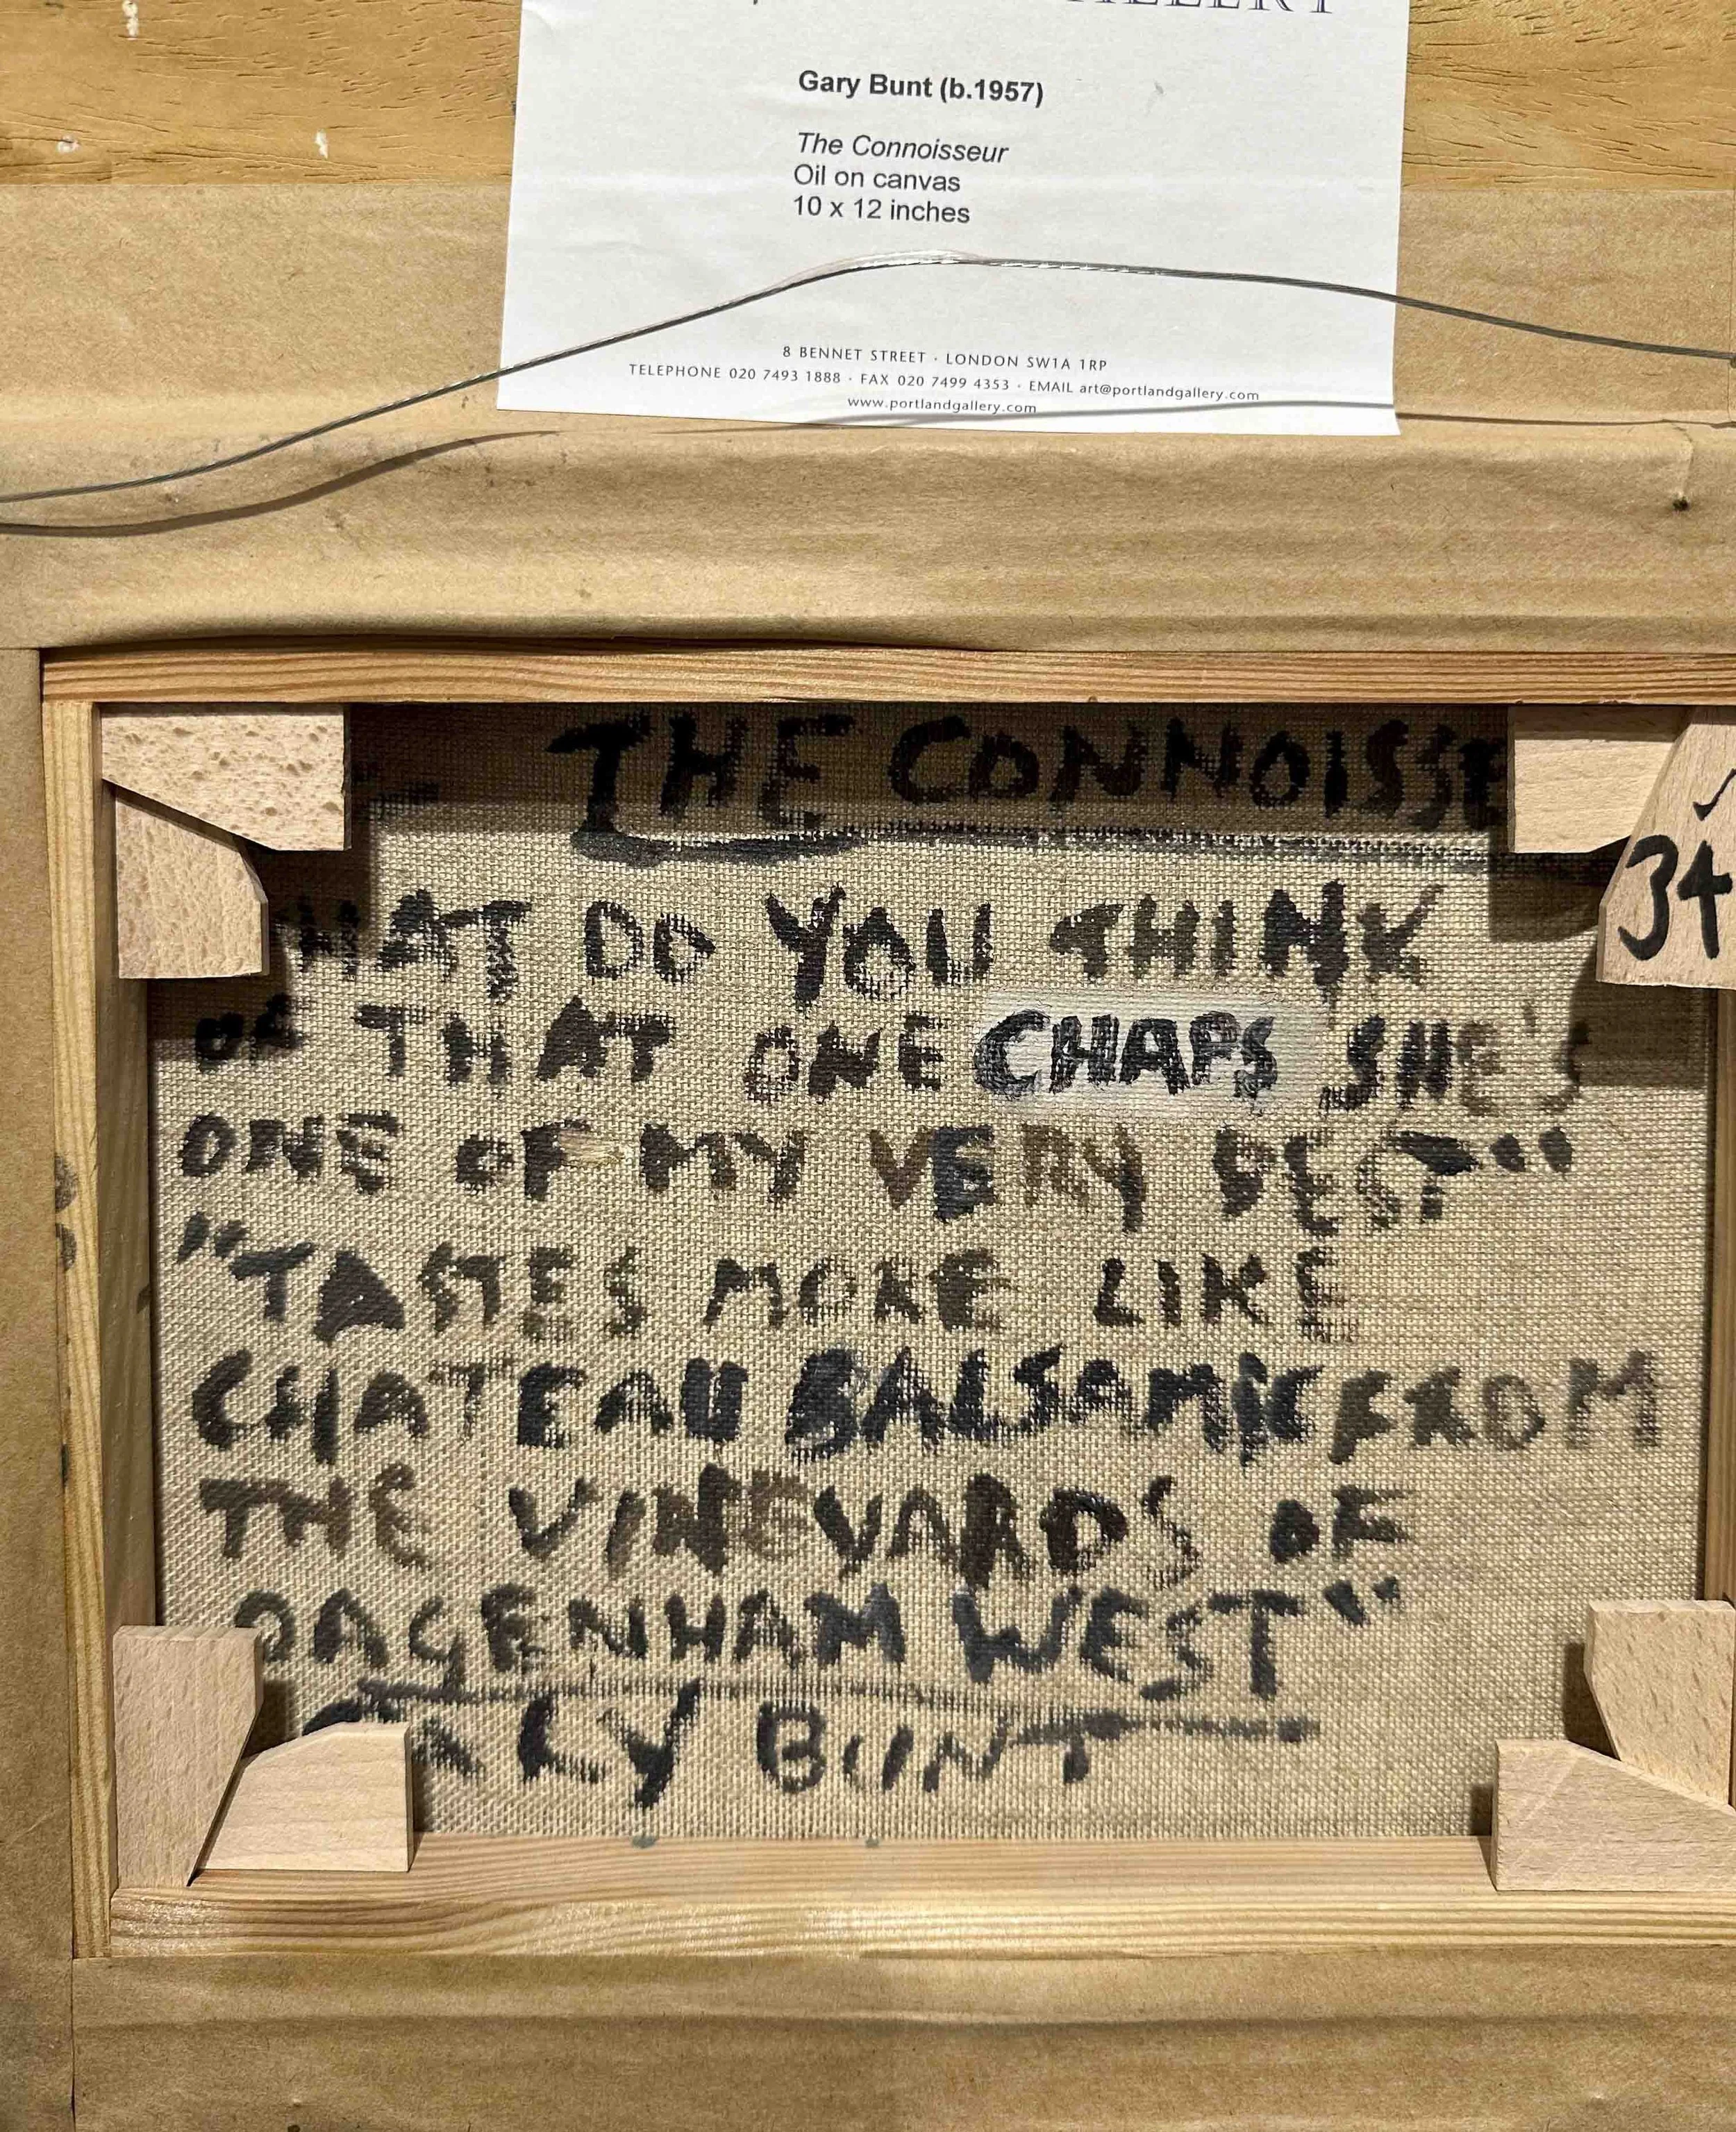 Gary Bunt (b.1957)
The Connoisseur
Oil on canvas
10 x 12 inches
8 BENNET STREET · LONDON SW1A 1RP
TELEPHONE 020 7493 1888 · FAX 020 7499 4353 · EMAIL art@portlandgallery.com
www.portlandgallery.com
THE CONNOISSE
34
HAT DO YOU THINK
OF THAT ONE CHAPS SHE'S
ONE OF MY VERY BEST"
"TASTES MORE LIKE
CHATEAU BALSAMIC FROM
THE VINEYARDS OF
DAGENHAM WEST"
GARY BUNT